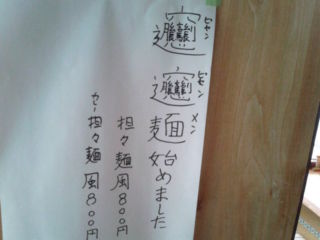 𰻞𰻞麺始めました
ビャン
ビャン
メン
担々麺風800円
カレー担々麺風800円